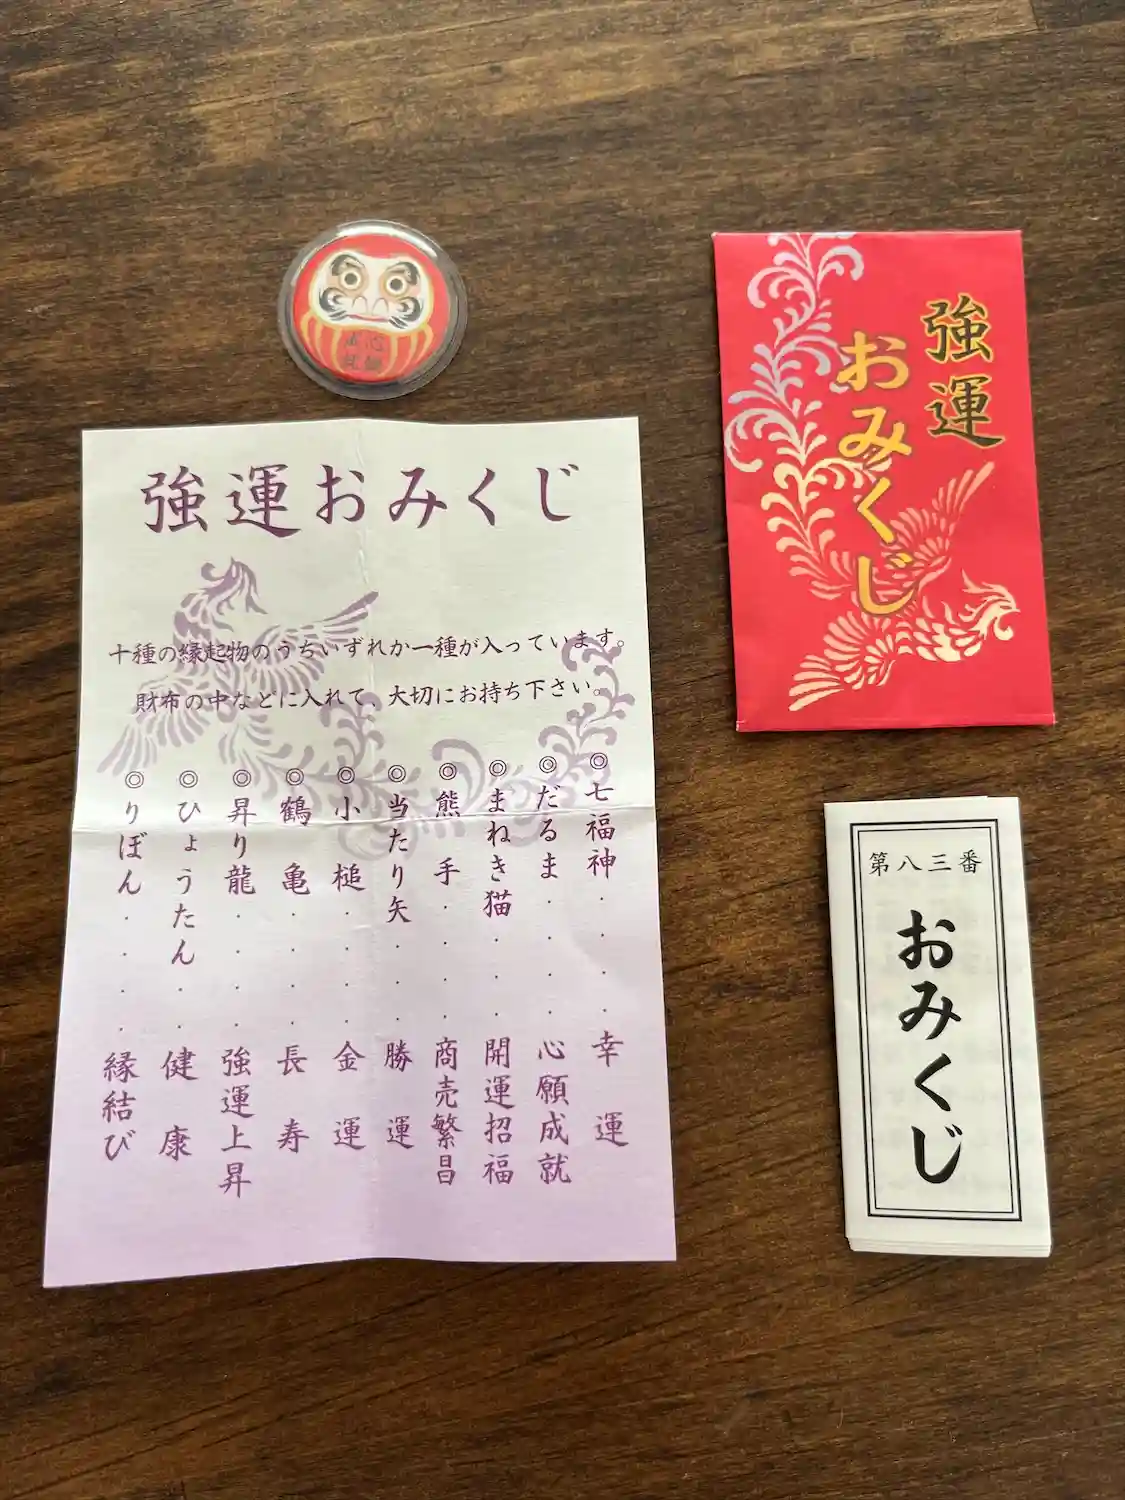 強運おみくじ
十種の縁起物のうちいずれか一種が入っています。
財布の中などに入れて、大切にお持ち下さい。
◎七福神・・・・幸運
◎だるま・・・・心願成就
◎まねき猫・・・開運招福
◎熊手・・・・商売繁昌
◎当たり矢・・・勝運
◎小槌・・・・金運
◎鶴亀・・・・長寿
◎昇り龍・・・・強運上昇
◎ひょうたん・・健康
◎りぼん・・・・縁結び
強運
おみくじ
第八三番
おみくじ